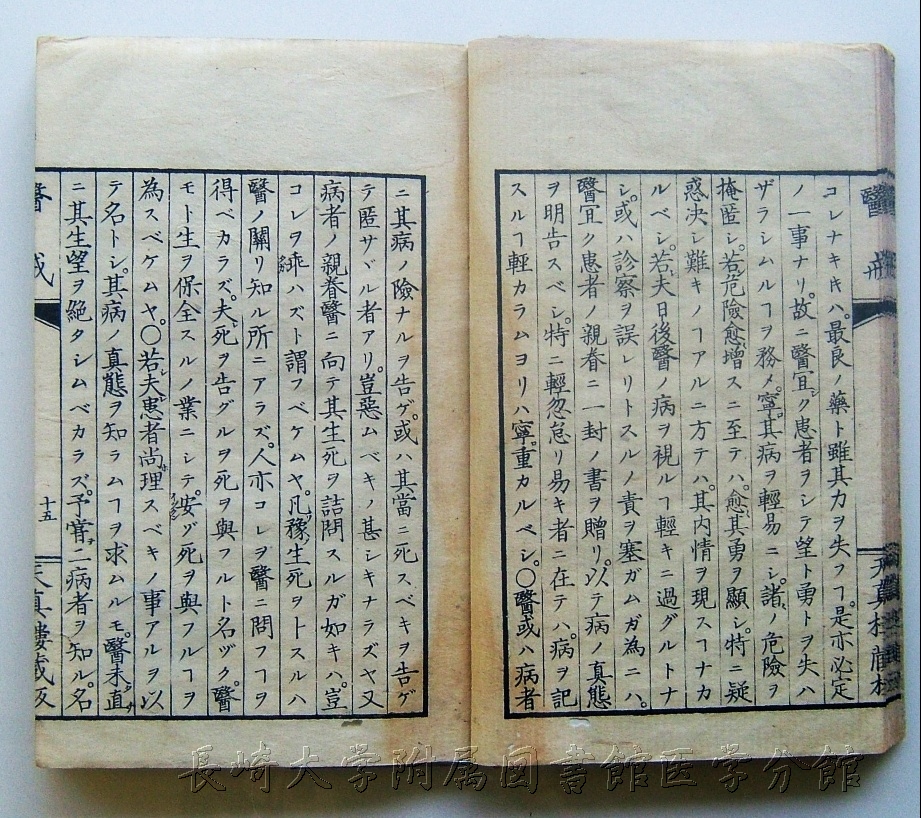 コレナキキハ。最良ノ藥ト雖其力ヲ失フヿ。是亦必定
ノ一事ナリ。故ニ醫宜ク患者ヲシテ望ト勇トヲ失ハ
ザラシムルヿヲ務メ。寧其病ヲ輕易ニシ。諸ノ危險ヲ
掩匿シ。若危險愈增スニ至テハ。愈其勇ヲ顯シ。特ニ疑
惑決シ難キノヿアルニ方テハ。其内情ヲ現スヿナカ
ルベシ。若夫日後醫ノ病ヲ視ルヿ輕キニ過グルトナ
シ。或ハ診察ヲ誤レリトスルノ責ヲ塞ガムガ為ニハ。
醫宜ク患者ノ親眷ニ一封ノ書ヲ贈リ。以テ病ノ真態
ヲ明告スベシ。特ニ輕忽怠リ易キ者ニ在テハ。病ヲ記
スルヿ輕カラムヨリハ寧重カルベシ。○醫或ハ病者
ニ其病ノ險ナルヲ告ゲ。或ハ其當ニ死スベキヲ告ゲ
テ匿サヾル者アリ。豈惡ムベキノ甚シキナラズヤ又
病者ノ親眷醫ニ向テ其生死ヲ詰問スルガ如キハ。豈
コレヲ繍ハズト謂フベケムヤ。凡豫生死ヲトスルハ
醫ノ關リ知ル所ニアラズ。人亦コレヲ醫ニ問フヿヲ
得ベカラズ。夫死ヲ告グルヲ死ヲ與フルト名ヅク。醫
モト生ヲ保全スルノ業ニシテ。安ゾ死ヲ與フルヿヲ
為スベケムヤ。○若夫患者尚理スベキノ事アルヲ以
テ名トシ。其病ノ真態ヲ知ラムヿヲ求ムルモ。醫未直
ニ其生望ヲ絶タシムベカラズ。予嘗ニ病者ヲ知ル。名
醫戒
十五
天真樓藏板
長崎大学附属図書館医学分館